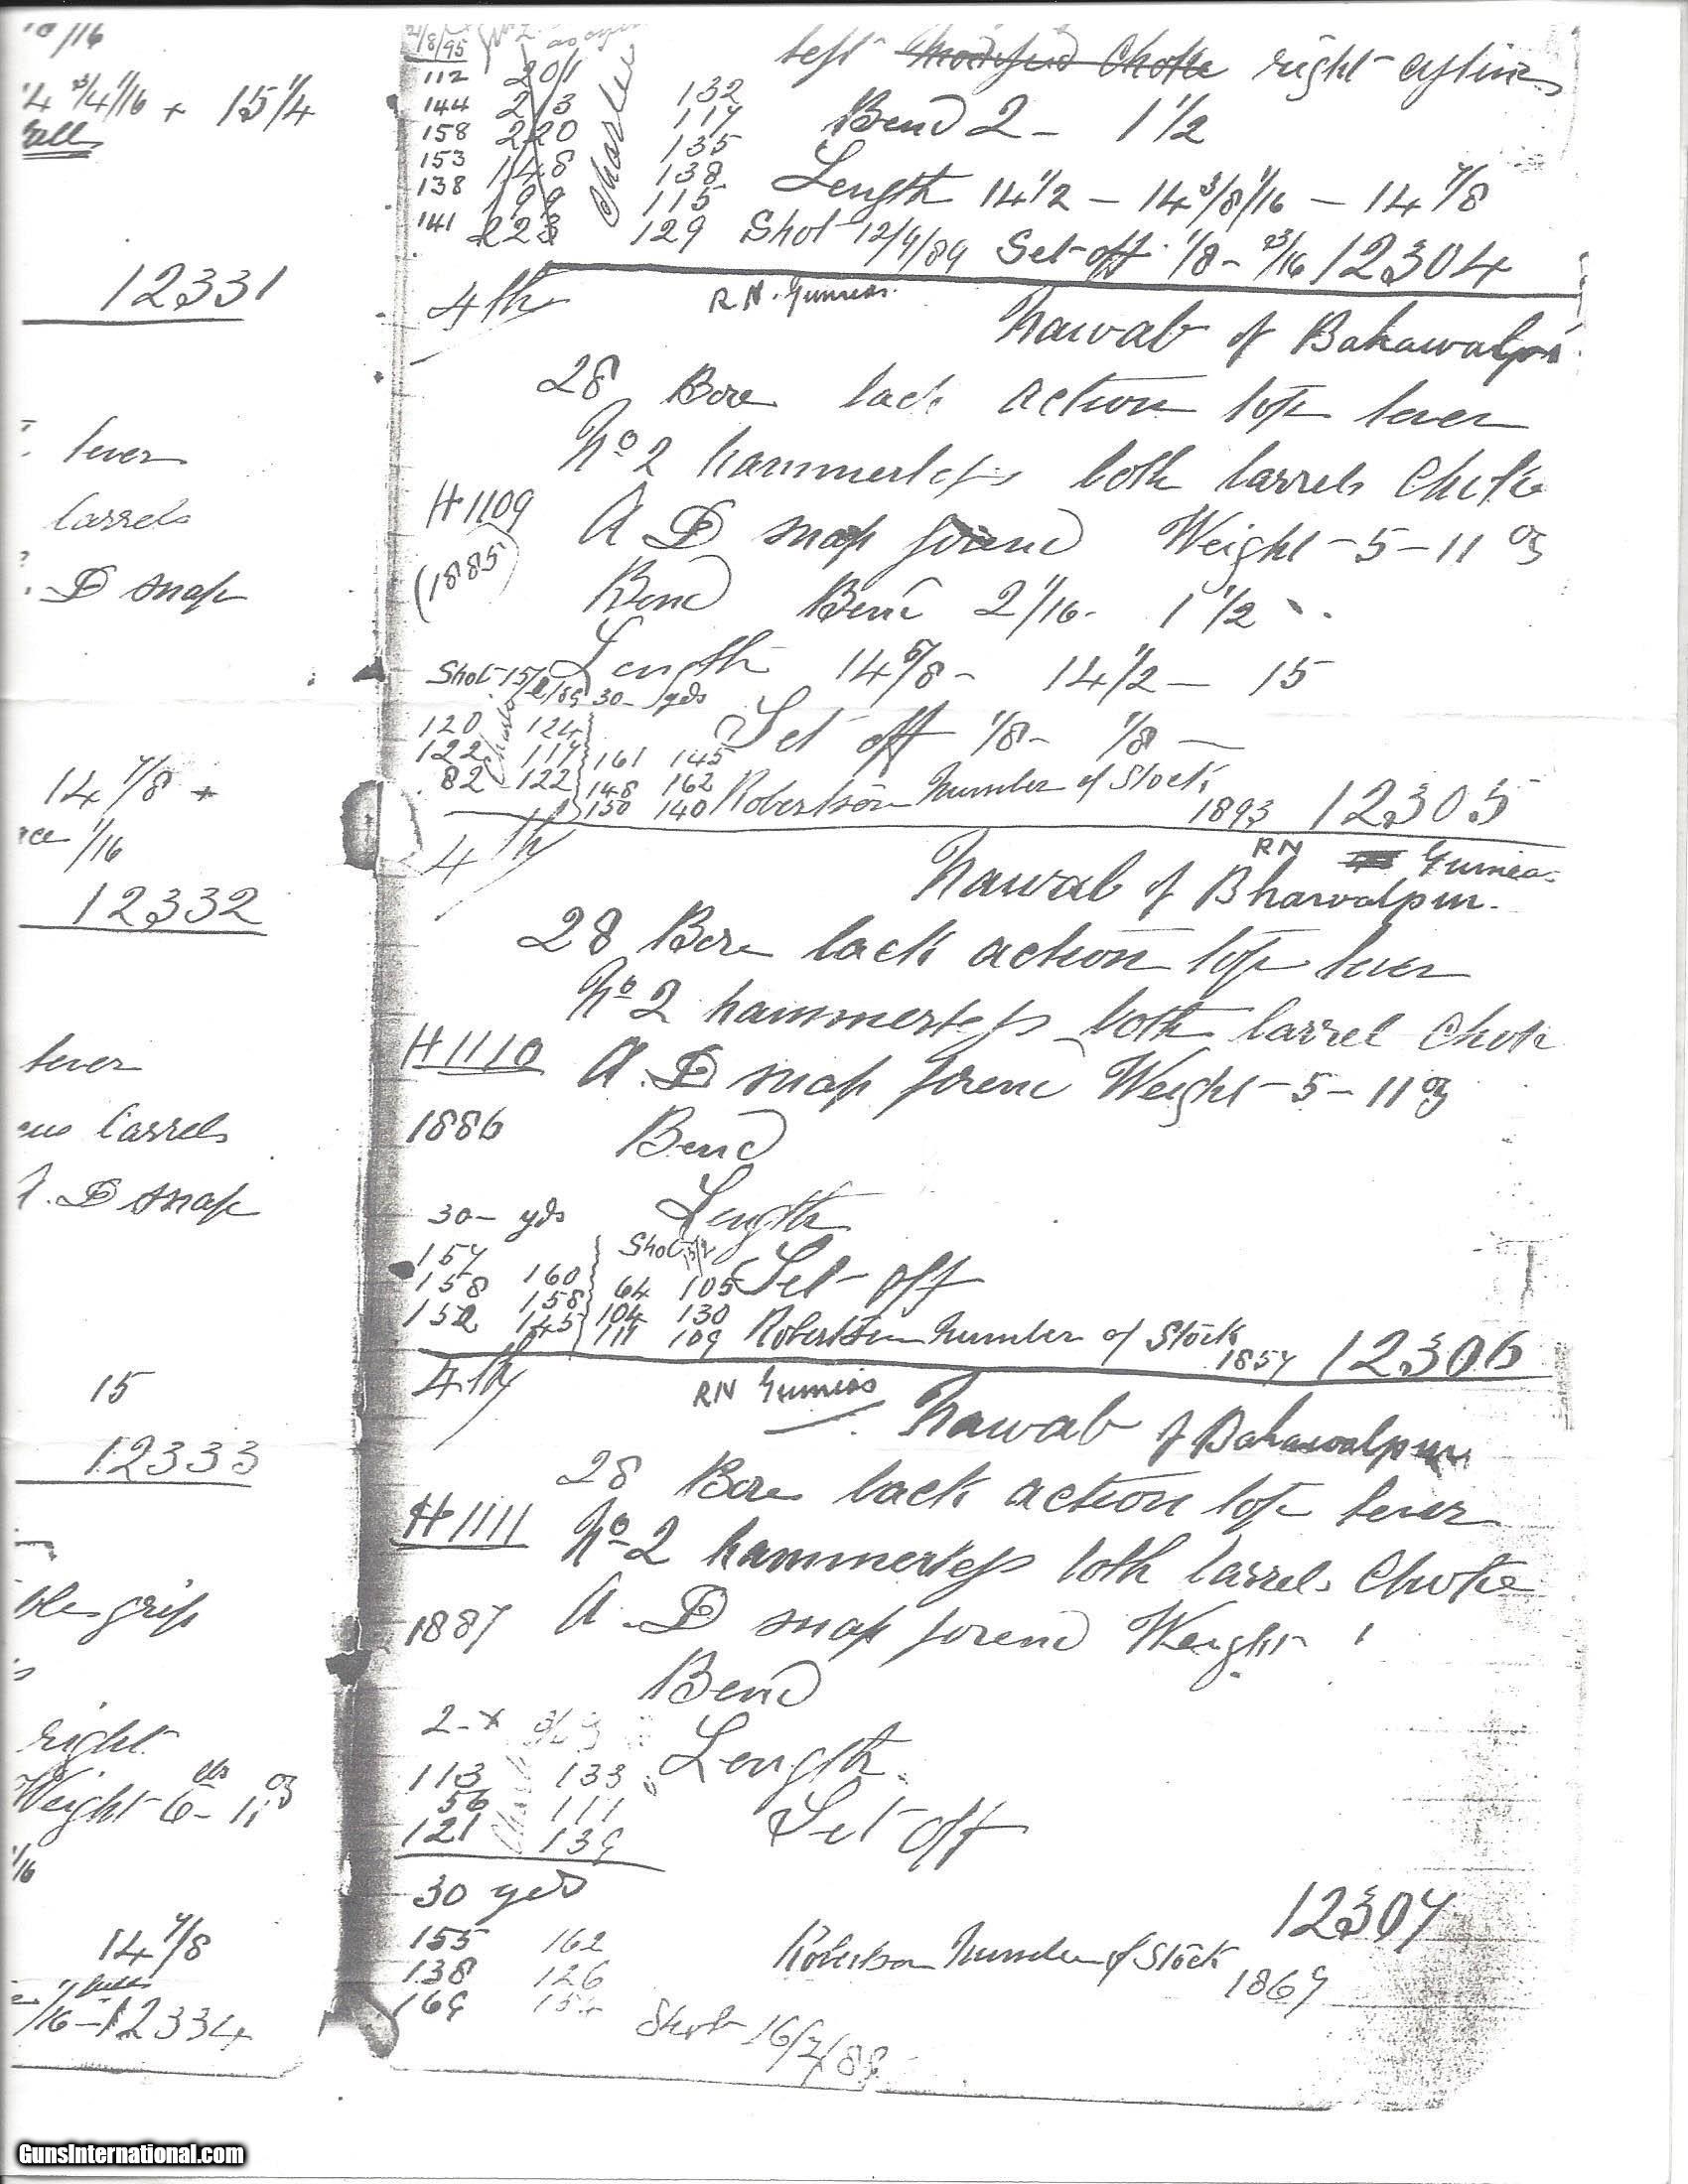 10/16
14 3/4 1/16 + 15 1/4
12331
lever
barrels
D snap
14 7/8 +
1/16
12332
lever
barrels
A. D snap
15
12333
grip
right
Weight 6 - 11 oz
1/16
14 7/8
1/16 - 12334
2/8/95
112 201
144 213
158 220
153 148
138 199
141 223
Charles
132
117
135
138
115
129
left Modified Choke right cylin
Bend 2 - 1 1/2
Length 14 1/2 - 14 3/8 1/16 - 14 7/8
Shot 12/9/89 Set-off 1/8 - 3/16 12304
4th RN. Gumias.
Nawab of Bahawalpu
28 Bore back action top lever
No 2 hammerless both barrels Choke
H 1109
(1885)
A D snap forend Weight - 5 - 11 oz
Bend Bend 2 1/16 - 1 1/2
Length 14 5/8 - 14 1/2 - 15
Shot 15/2/89 30 - yds
Set off 1/8 - 1/8 -
120 124 161 145
122 117 148 162
82 122 150 140
Robertson Number of Stock
1893 12305
4th RN Gumias
Nawab of Bhawalpur.
28 Bore back action top lever
No 2 hammerless both barrel Choke
H 1110
A. D snap forend Weight - 5 - 11 oz
1886 Bend
30 - yds Length
157 160 Shot 64 105 Set - off
158 158 104 130
152 145 111 109 Robertson Number of Stock
1857 12306
4th RN Gumias Nawab of Bahawalpur
28 Bore back action top lever
H 1111 No 2 hammerless both barrels Choke
1887 A. D snap forend Weight
Bend
Length
113 133
56 111
121 139
Set off
30 yds
155 162
138 126
169 154
12307
Robertson Number of Stock
1869
Shot 16/2/89
GunsInternational.com